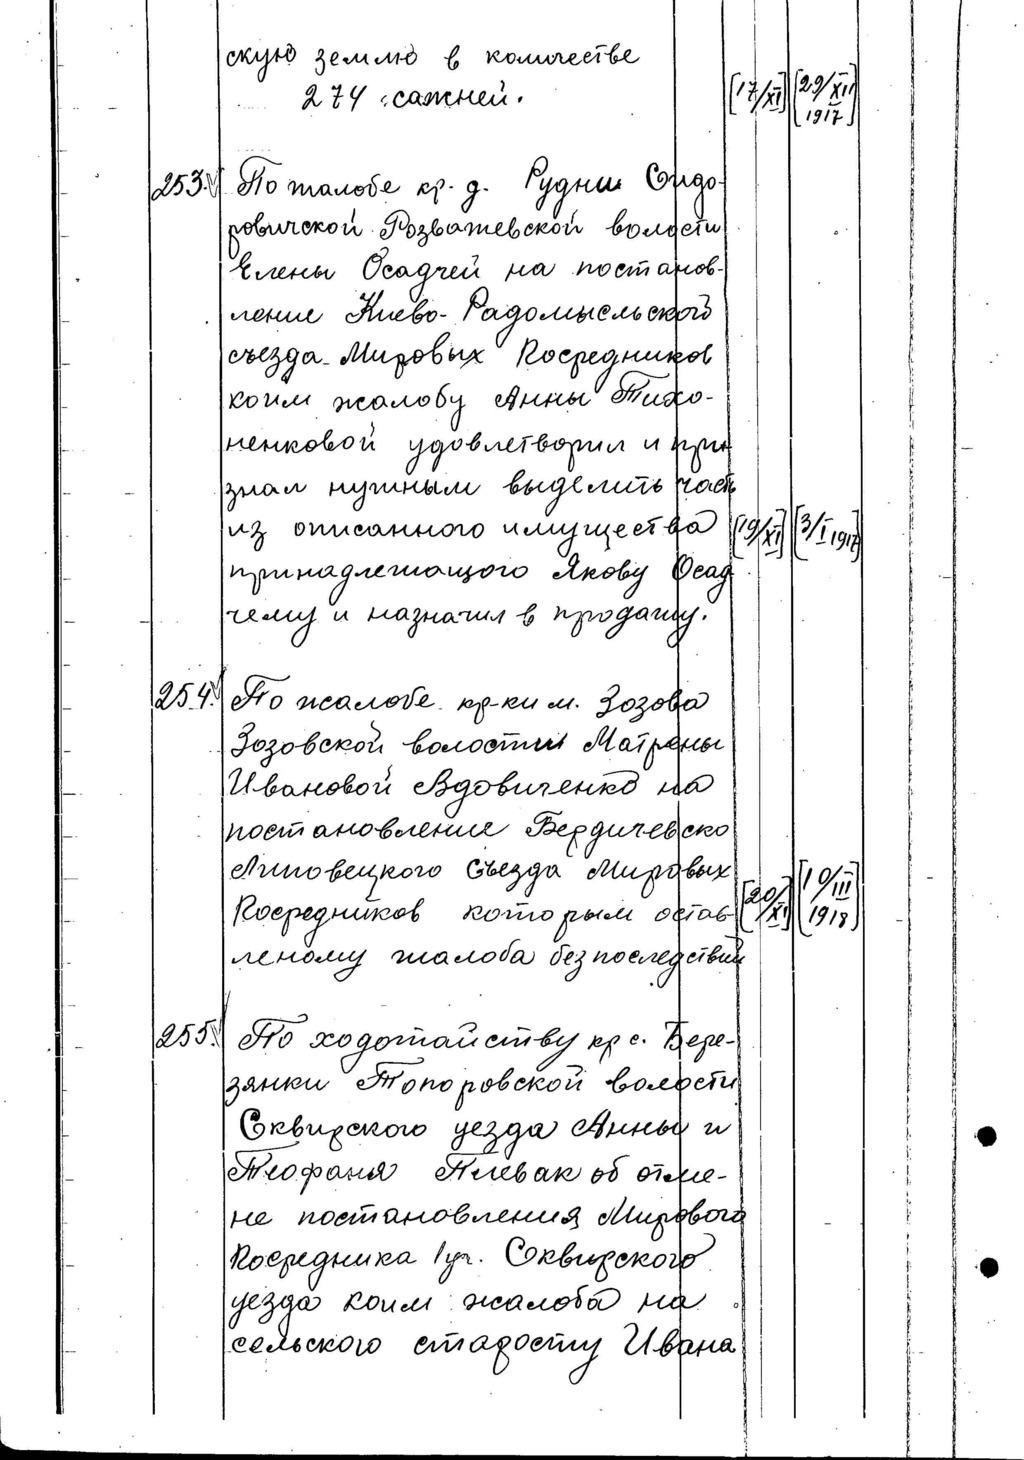 скую землю в количестве
274 сажней.
[17/XI] [29/XII 1917]
253. По жалобе кр. д. Рудни Сидо-
ровичской Розважевской волости
Елены Осадчей на постанов-
ление Киево-Радомысльской
съезда Мировых Посредников
коим жалобу Анны Тихо-
ненковой удовлетворил и при
знал нужным выделить часть
из описанного имущества
[19/XI] [3/I 1917]
принадлежащого Якову Осад
чему и назначил в продажу.
254. По жалобе кр-ки м. Зозова
Зозовской волости Матрены
Ивановой Вдовиченко на
постановление Бердичевско
Липовецкого Съезда Мировых
[20/XI] [10/III 1918]
Посредников которым остав
леному жалоба без последствий
255. По ходотайству кр с. Бере-
зянки Топоровской волости
Сквирского уезда Анны и
Теофаня Плевак об отме-
не постановления Мирового
Посредника 1 уч. Сквирского
уезда коим жалоба на
сельского старосту Ивана